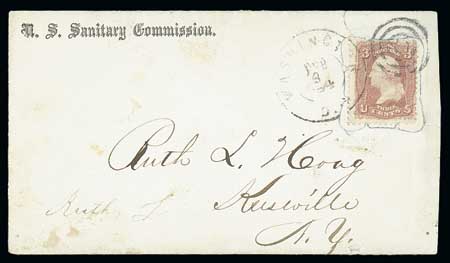 U. S. Sanitary Commission.
WASHINGTON
D.C.
3 3
U THREE CENTS S
Ruth L. Hoag
Keesville
N. Y.
Ruth L